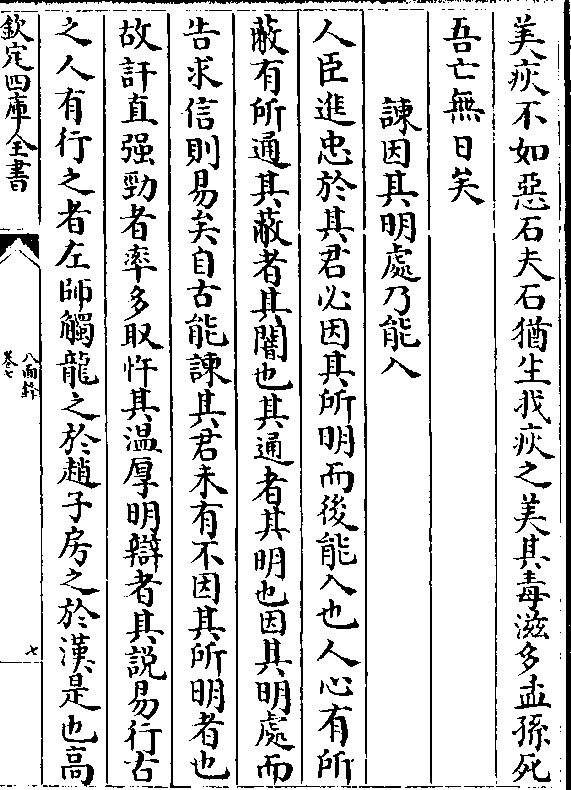 美疢不如惡石夫石猶生我疢之美其毒滋多孟孫死
吾亡無日矣
諫因其明處乃能入
人臣進忠於其君必因其所明而後能入也人心有所
蔽有所通其蔽者其闇也其通者其明也因其明處而
告求信則易矣自古能諫其君未有不因其所明者也
故訐直强勁者率多取忤其温厚明辯者其説易行古
之人有行之者左師觸龍之於趙子房之於漢是也高
欽定四庫全書
八面鋒
卷七
七